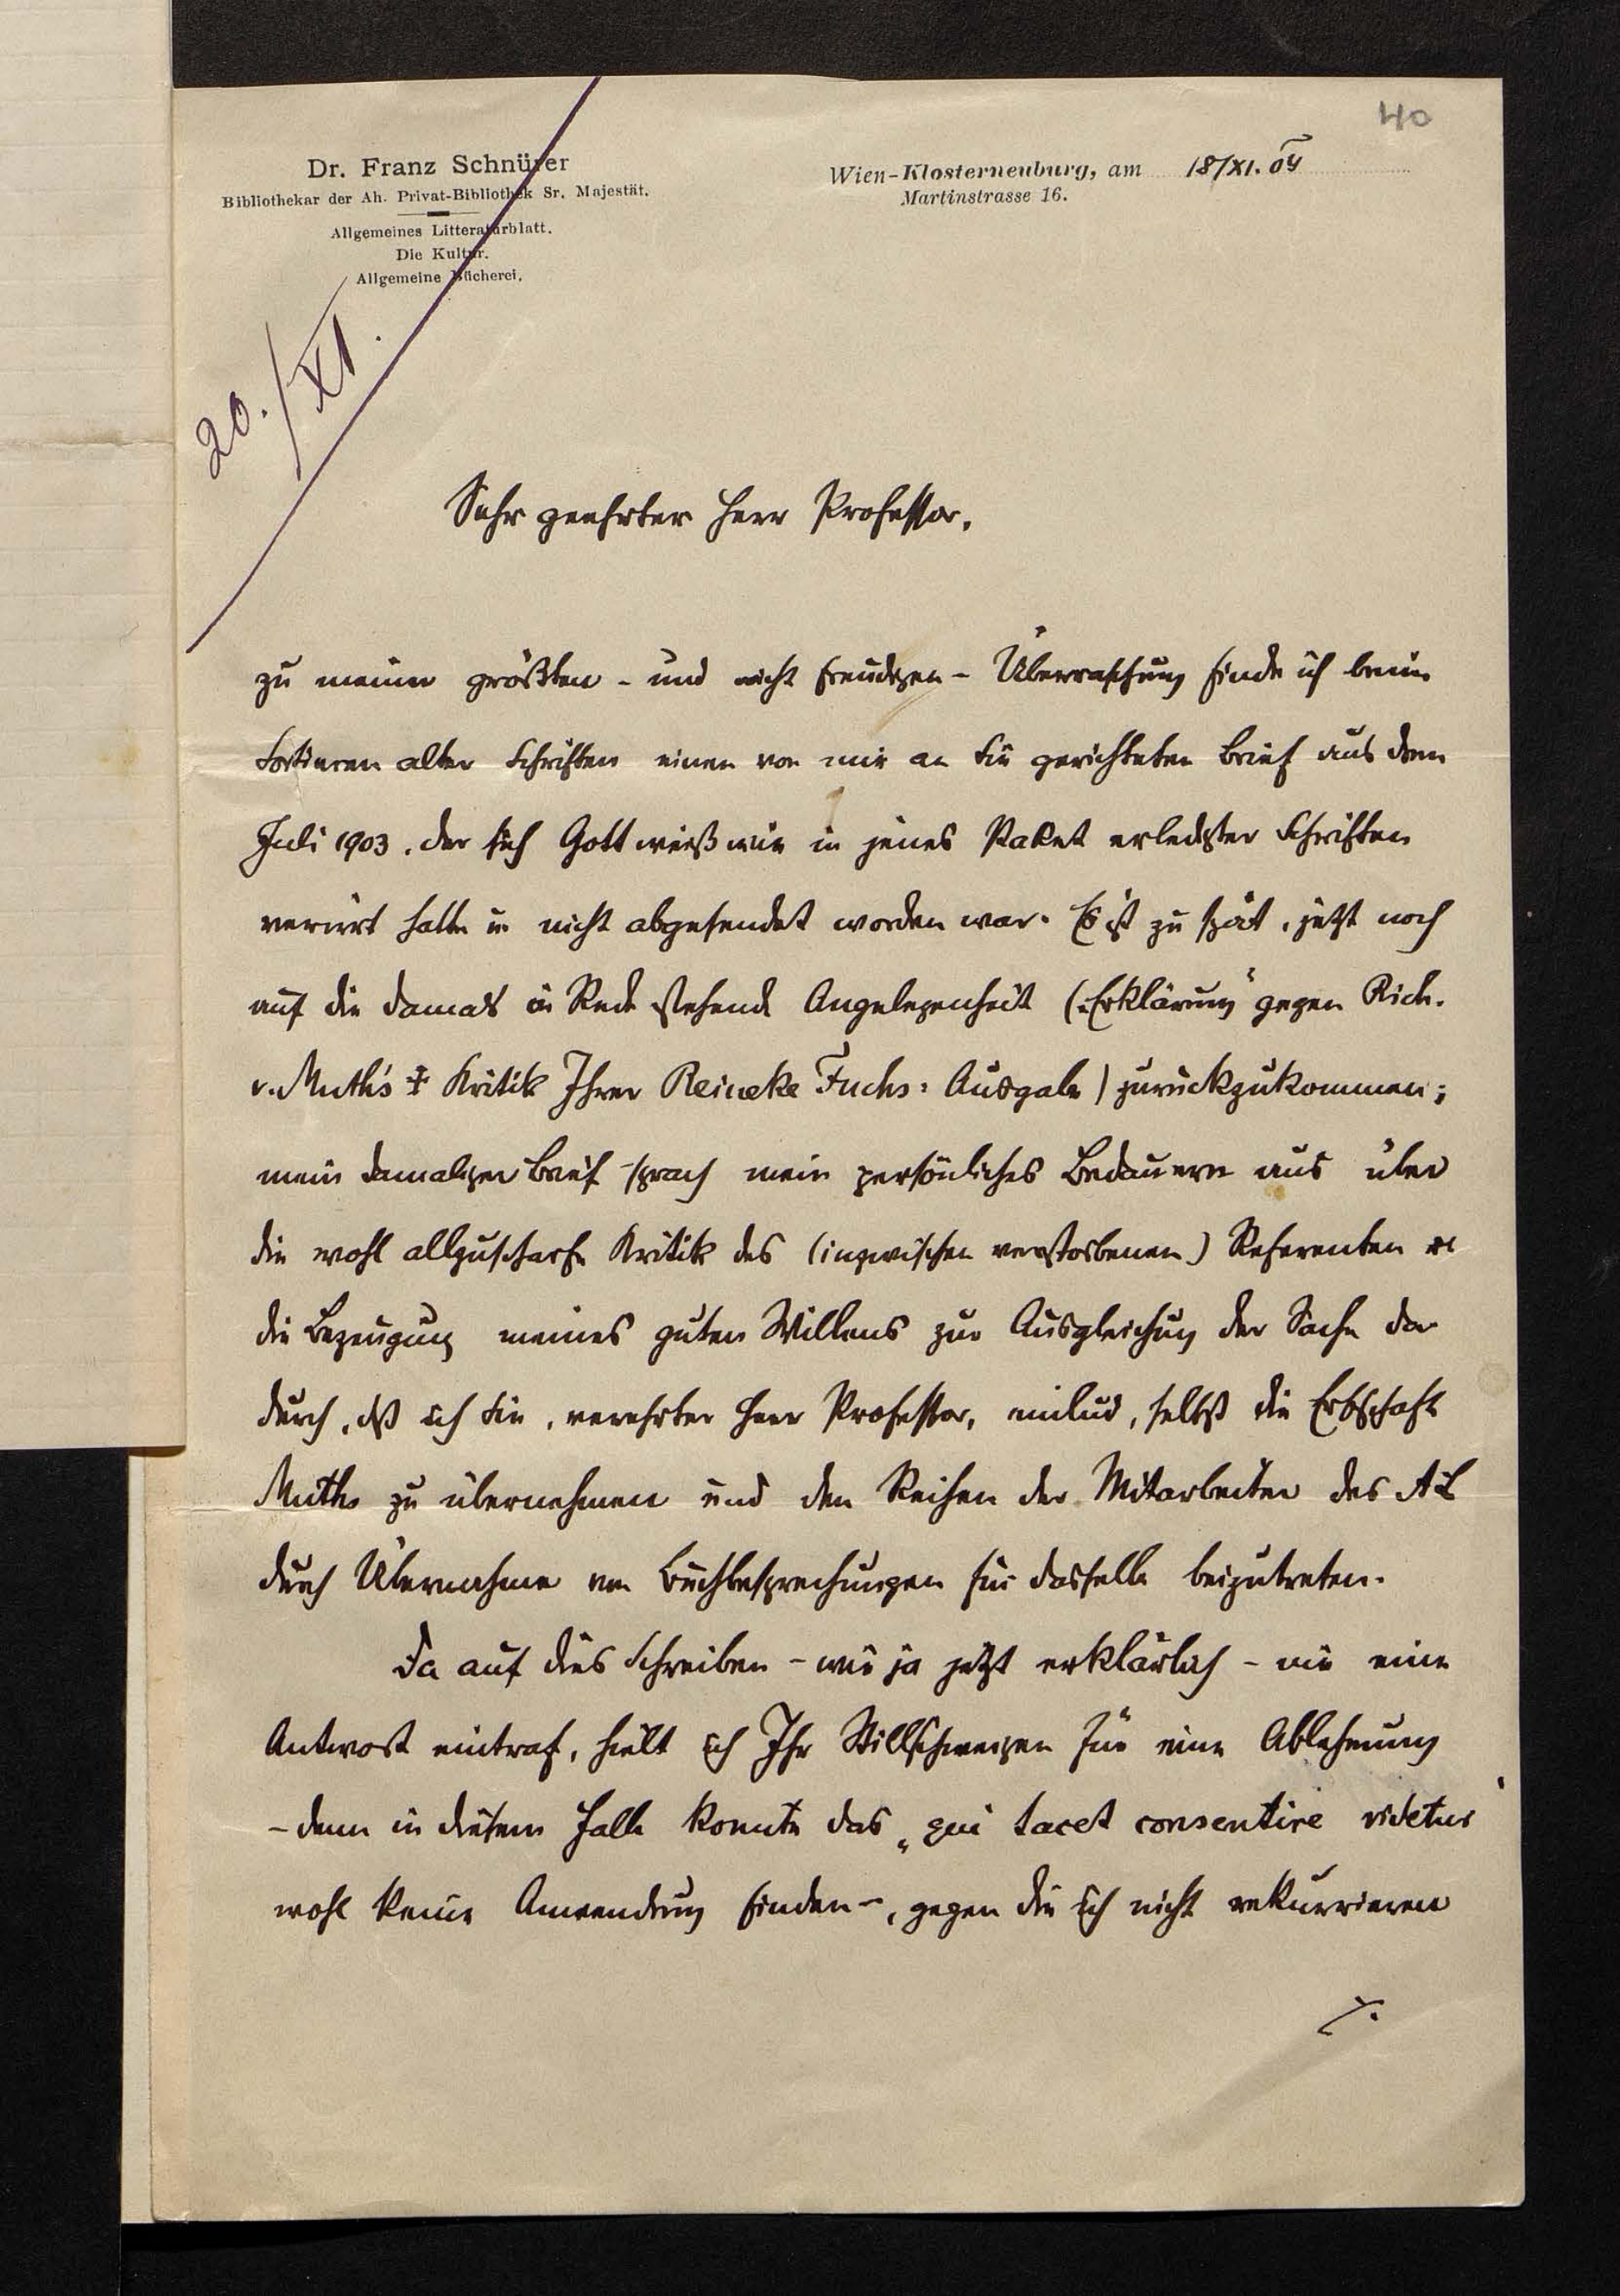 40
Dr. Franz Schnürer
Bibliothekar der Ah. Privat-Bibliothek Sr. Majestät.
Allgemeines Litteraturblatt.
Die Kultur.
Allgemeine Bücherei.
Wien-Klosterneuburg, am 18/XI. 04
Martinstrasse 16.
20./XI.
Sehr geehrter Herr Professor,
zu meiner größten - und nicht freudigen - Überraschung finde ich beim
Sortieren alter Schriften einen von mir an Sie gerichteten Brief aus dem
Juli 1903, der sich Gott weiß wie in jenes Paket erledigter Schriften
verirrt hatte u. nicht abgesendet worden war. Es ist zu spät, jetzt noch
auf die damals in Rede stehende Angelegenheit („Erklärung“ gegen Rich.
v. Muth's † Kritik Ihrer Reineke Fuchs-Ausgabe) zurückzukommen;
mein damaliger Brief sprach mein persönliches Bedauern aus über
die wohl allzuscharfe Kritik des (inzwischen verstorbenen) Referenten u.
die Bezeugung meines guten Willens zur Ausgleichung der Sache da-
durch, daß ich Sie, verehrter Herr Professor, einlud, selbst die Erbschaft
Muths zu übernehmen und den Reihen der Mitarbeiter des AL
durch Übernahme von Buchbesprechungen für dasselbe beizutreten.
Da auf dies Schreiben - wie ja jetzt erklärlich - nie eine
Antwort eintraf, hielt ich Ihr Stillschweigen für eine Ablehnung
- denn in diesem Falle konnte das „qui tacet consentire videtur“
wohl keine Anwendung finden -, gegen die ich nicht rekurrieren